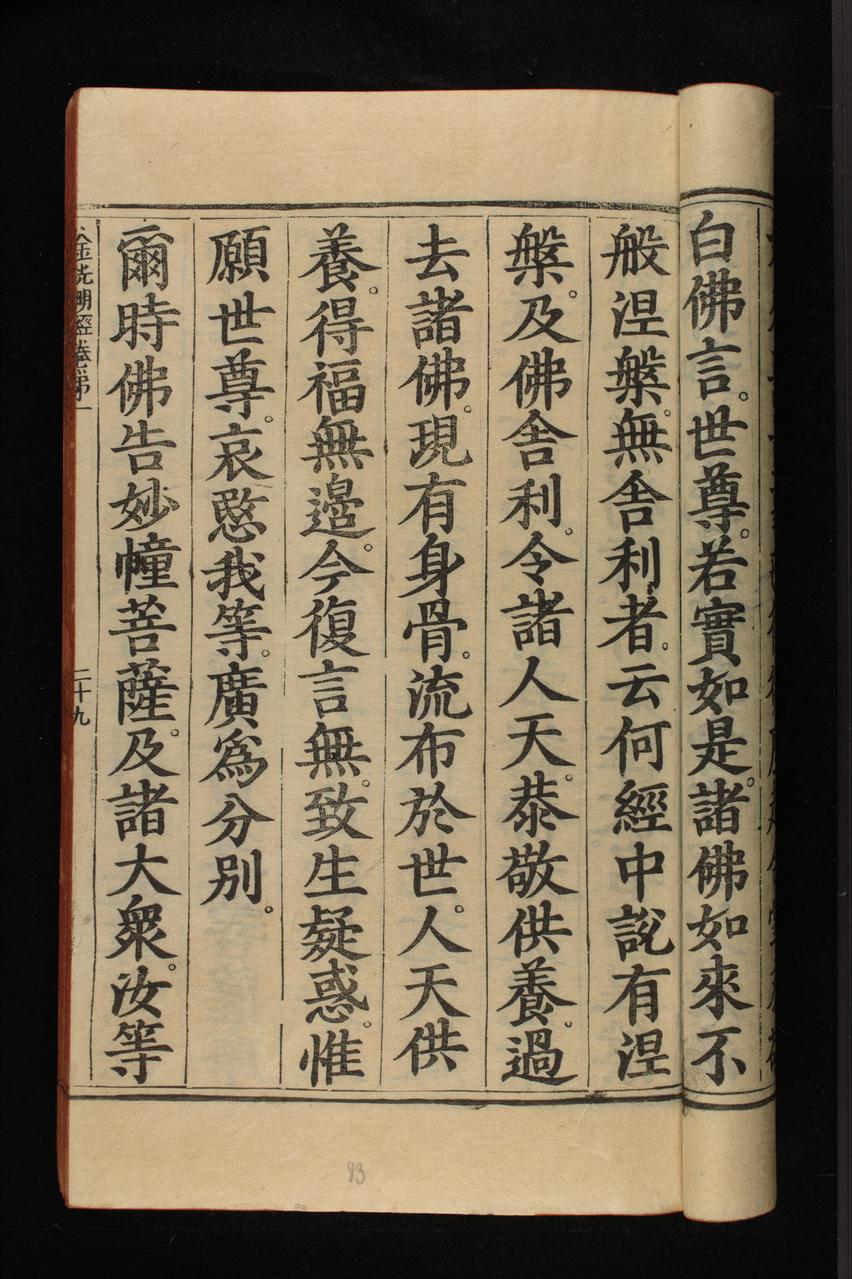 白佛言。世尊。若實如是。諸佛如來不
般涅槃。無舍利者。云何經中說有涅
槃。及佛舍利。令諸人天。恭敬供養。過
去諸佛。現有身骨。流布於世。人天供
養。得福無邊。今復言無。致生疑惑。惟
願世尊。哀愍我等。廣為分別。
爾時佛告妙幢菩薩。及諸大衆。汝等
金光明經卷第一
二十九
93